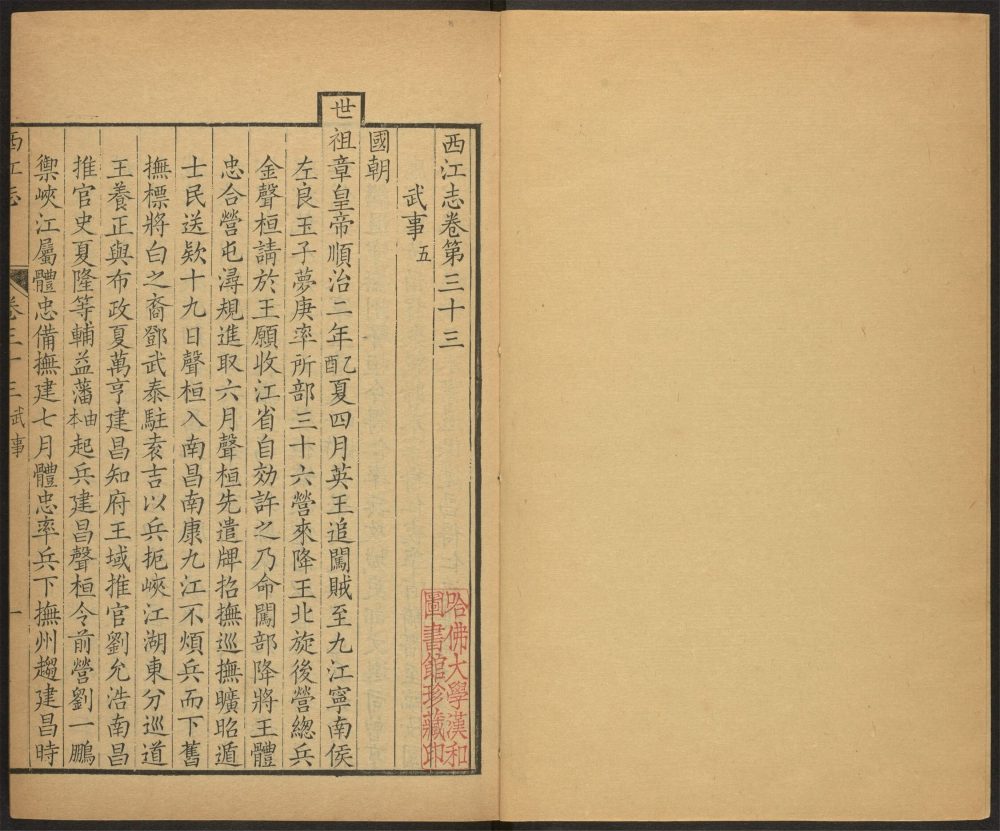 西江志卷第三十三
武事五
國朝
世祖章皇帝順治二年乙酉夏四月英王追闖賊至九江寧南侯
左良玉子夢庚率所部三十六營來降王北旋後營總兵
金聲桓請於王願收江省自効許之乃命闖部降將王體
忠合營屯潯規進取六月聲桓先遣牌招撫巡撫曠昭遁
士民送欵十九日聲桓入南昌南康九江不煩兵而下舊
撫標將白之裔鄧武泰駐袁吉以兵扼峽江湖東分巡道
王養正與布政夏萬亨建昌知府王域推官劉允浩南昌
推官史夏隆等輔益藩由本起兵建昌聲桓令前營劉一鵬
禦峽江屬體忠備撫建七月體忠率兵下撫州趨建昌時
西江志 卷三十三 武事 一
哈佛大學漢和
圖書館珍藏印